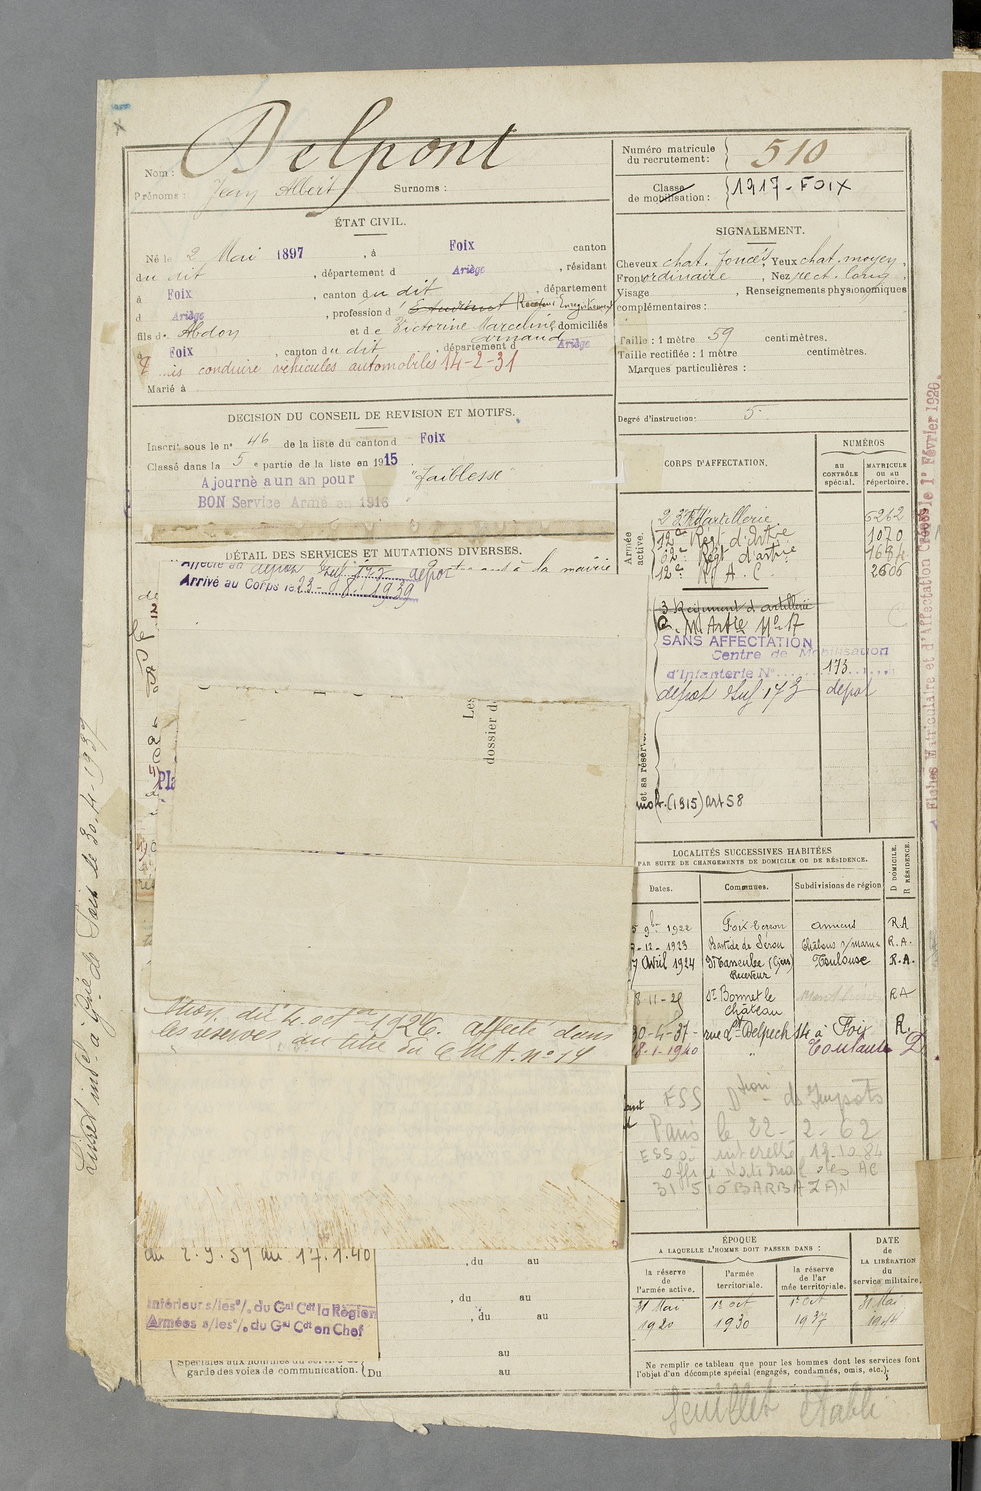 Delpont
Nom :
Prénoms : Jean Albert Surnoms :
Numéro matricule du recrutement : 510
Classe de mobilisation : 1917 - FOIX
ÉTAT CIVIL.
Né le 2 Mai 1897, à Foix canton
du dit, département d Ariège, résidant
à Foix, canton du dit, département
d Ariège, profession d' Etudiant Receveur Enregistrement
fils de Abdon et de Victorine Marceline Arnaud domiciliés
à Foix, canton du dit, département d Ariège
conduire véhicules automobiles 14-2-31
Marié à
SIGNALEMENT.
Cheveux chat. foncés, Yeux chat. moyen,
Front ordinaire, Nez rect. long,
Visage , Renseignements physionomiques
complémentaires :
Taille : 1 mètre 59 centimètres.
Taille rectifiée : 1 mètre centimètres.
Marques particulières :
Degré d'instruction: 5
DECISION DU CONSEIL DE REVISION ET MOTIFS.
Inscrit sous le n° 46 de la liste du canton d Foix
Classé dans la 5e partie de la liste en 1915
Ajourné a un an pour "Faiblesse"
BON Service Armé en 1916
DÉTAIL DES SERVICES ET MUTATIONS DIVERSES.
Affecté au dépôt Inf 173 dépôt à la mairie
Arrivé au Corps le 23-8-1939
Les
dossier d
Pla
CORPS D'AFFECTATION.
NUMÉROS
AU CONTRÔLE spécial.
MATRICULE OU AU répertoire.
Armée active.
23e Rt d'artillerie 6262
12e Régt d'Artie 1070
62e Régt d'artie 1684
12e R A C 2606
3 Régiment d'artillerie
C. M. Artie N° 17
SANS AFFECTATION
Centre de Mobilisation
d'Infanterie N° 173
dépôt Inf 173 dépôt
et sa réserve
(1915) art 58
LOCALITÉS SUCCESSIVES HABITÉES
PAR SUITE DE CHANGEMENTS DE DOMICILE OU DE RÉSIDENCE.
Dates. Communes. Subdivisions de région
D DOMICILE. R RÉSIDENCE.
9bre 1922 Amiens RA
9-12-1923 Bastide de Sérou Châlons s/marne R.A.
17 Avril 1924 (Gers) Receveur Toulouse R.A.
8-11-29 St Bonnet le Château RA
30-4-37 rue Delpech 14 à Foix R.
18-1-1940 " Toulouse D
ESS Dtion ds Impots
Paris le 22-2-62
ESS à intéressé 19.10.84
office National des AC
31510 BARBAZAN
tion du 4 octbre 1926. affecté dans
les réserves au titre du C M A. n° 17
du 2.9.39 au 17.1.40
Intérieur s/les °/. du Gal Cdt la Région
Armées s/les °/. du Gal Cdt en Chef
, du au
, du au
, du au
au
Spéciales aux hommes du service de
garde des voies de communication. Du au
ÉPOQUE
A LAQUELLE L'HOMME DOIT PASSER DANS :
la réserve de l'armée active.
l'armée territoriale.
la réserve de l'armée territoriale.
DATE de LA LIBÉRATION du service militaire.
31 Mai 1920
1er oct 1930
1er oct 1937
31 Mai 1944
Ne remplir ce tableau que pour les hommes dont les services font
l'objet d'un décompte spécial (engagés, condamnés, omis, etc.).
feuillet établi
Livret 30-4-1937
Fiches Matriculaire et d'Affectation Créées le 1er Février 1920.